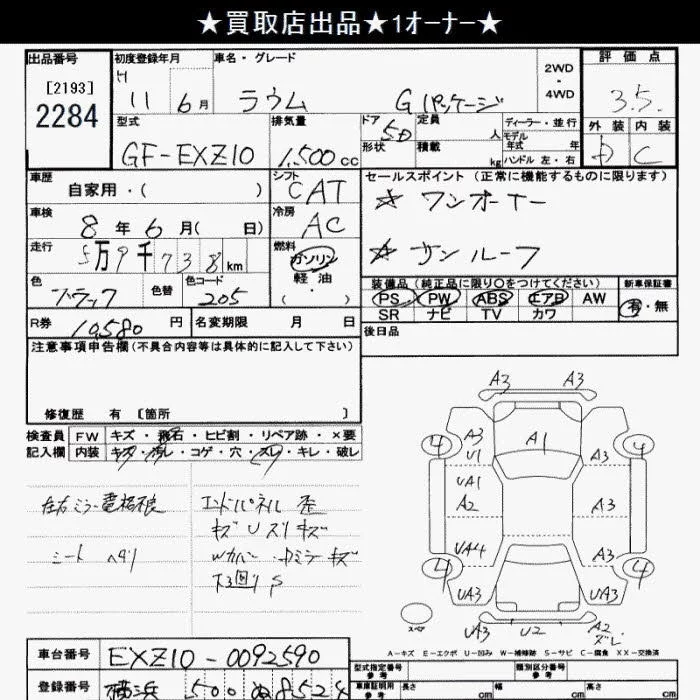 ★買取店出品★1オーナー★
出品番号
[2193]
2284
初度登録年月
H 11年 6月
車名・グレード
ラウム Gパッケージ
2WD
・
4WD
評価点
3.5
外装 内装
C
型式
GF-EXZ10
排気量
1,500cc
ドア 5D
形状
定員 人
積載 kg
ディーラー・並行
モデル年式 年
ハンドル 左・右
車歴
自家用・( )
シフト
CAT
セールスポイント(正常に機能するものに限ります)
☆ ワンオーナー
☆ サンルーフ
車検
8年 6月( 日)
冷房
AC
走行
5万9千738km
燃料
ガソリン
軽油
・( )
色
ブラック
色替
色コード
205
装備品(純正品に限り○をつけてください)
PS PW ABS エアB AW
SR ナビ TV カワ
新車保証書
有・無
R券 10,580円
名変期限 月 日
後日品
注意事項申告欄(不具合内容等は具体的に記入して下さい)
修復歴 有 [箇所 ]
検査員記入欄
FW キズ・飛石・ヒビ割・リペア跡・×要
内装 キズ・汚レ・コゲ・穴・スレ・キレ・破レ
左右ミラー電格
シート ヘタリ
エンドパネル 歪
キズ U スリキズ
Wカバー・ミラーキズ
下回り S
A3 A3
4 A3 U1 A1 A3 4
UA1
A2 A3
UA4 A3
4 4
UA3 UA3
スペア
UA3 U2 A2 ズレ
A-キズ E-エクボ U-凹み W-補修跡 S-サビ C-腐食 XX-交換済
車台番号 EXZ10-0092590
登録番号 横浜 500 ぬ8524
型式指定番号 参考
類別区分番号 参考
車庫証明用 参考
長さ cm 幅 cm 高さ cm